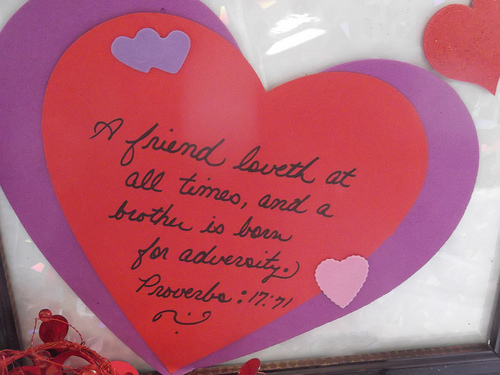 A friend loveth at
all times, and a
brother is born
for adversity.)
Proverbs : 17:71